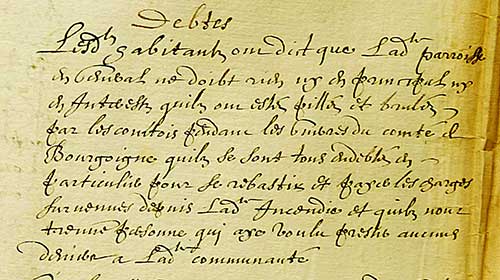 Debtes
Lesd. habitants ont dict que Lad. parroisse
en General ne doibt rien ny en principal ny
en Interests quils ont estés pillés et bruslés
par les comtois pendant les guerres du comté de
Bourgoigne quils se sont tous endebtés en
particulier pour se rebastir et payer les charges
survenues depuis Lad. Incendie et quils nont
treuvé personne qui aye voulu prester aucuns
deniers a Lad. communauté